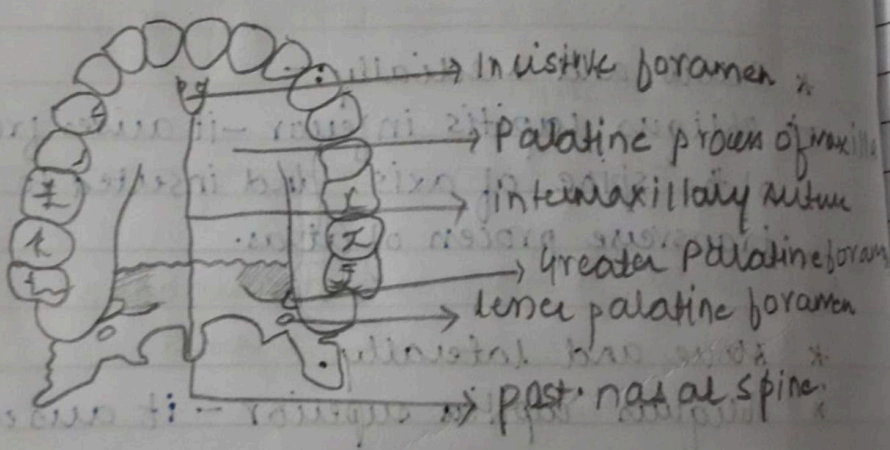 Incisive foramen
Palatine process of maxilla
intermaxillary suture
Greater Palatine foram
lesser palatine foramen
post. nasal spine.